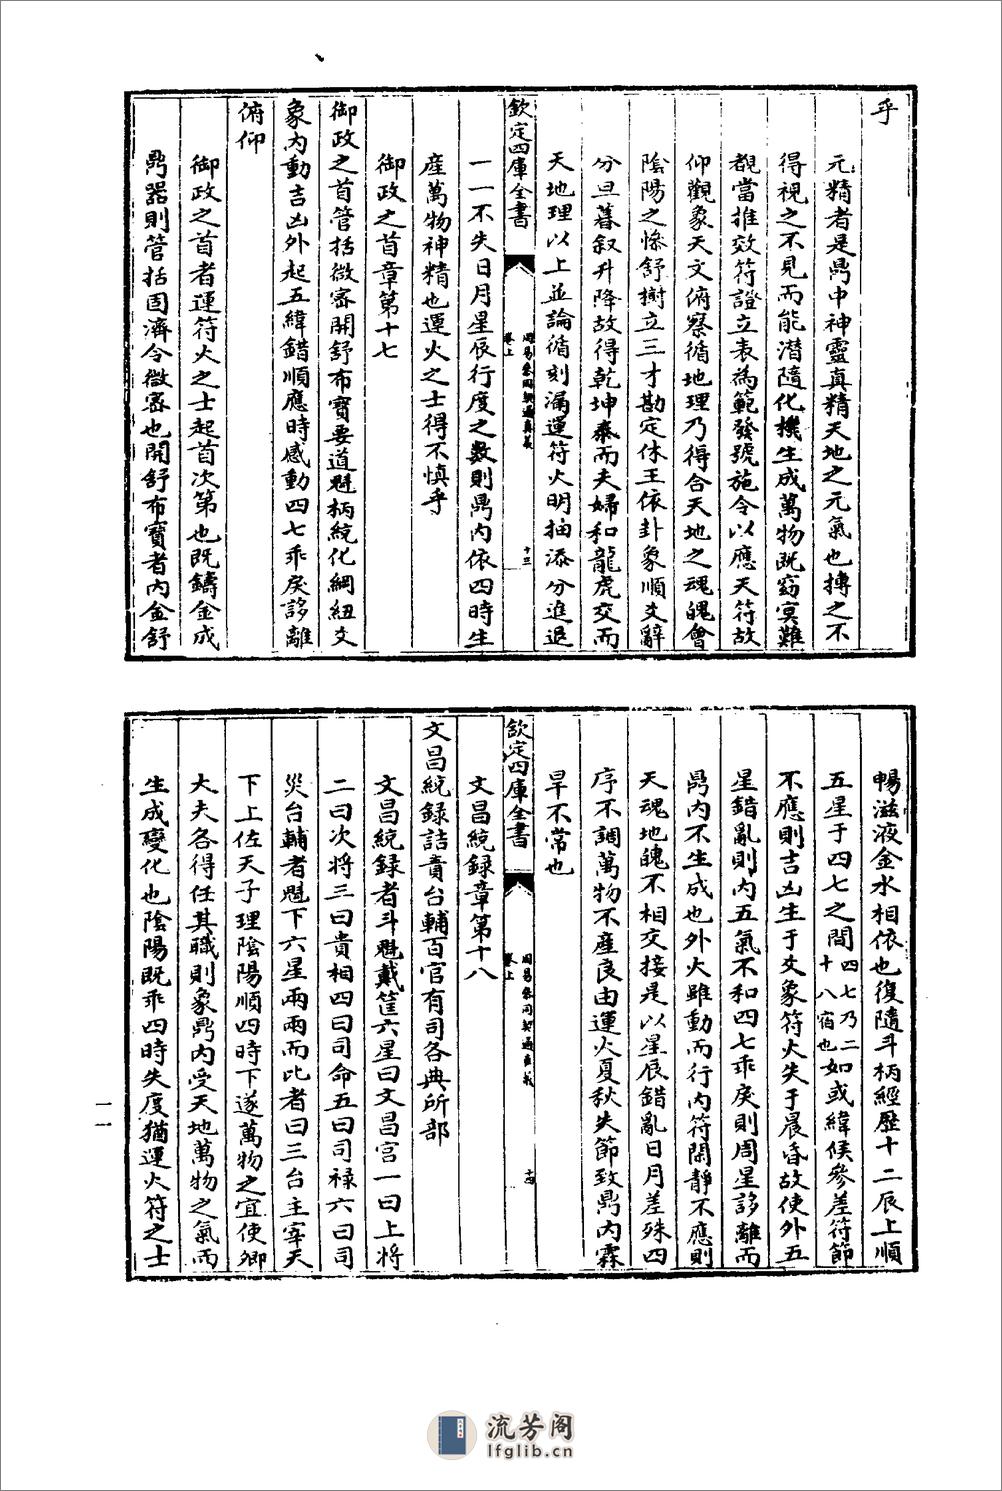 乎
元精者是鼎中神靈真精天地之元氣也摶之不
得視之不見而能潜隨化機生成萬物既窈冥難
覩當推效符證立表為範發號施令以應天符故
仰觀象天文俯察循地理乃得合天地之魂魄會
陰陽之慘舒樹立三才勘定休王依卦象順爻辭
分旦暮叙升降故得乾坤泰而夫婦和龍虎交而
天地理以上並論循刻漏運符火明抽添分進退
欽定四庫全書
周易參同契通真義
卷上
十三
一一不失日月星辰行度之數則鼎内依四時生
產萬物神精也運火之士得不慎乎
御政之首章第十七
御政之首管括微密開舒布寶要道魁柄統化綱紐爻
象内動吉凶外起五緯錯順應時感動四七乖戾誃離
俯仰
御政之首者運符火之士起首次第也既鑄金成
鼎器則管括固濟令微密也開舒布寶者内金舒
暢滋液金水相依也復隨斗柄經歷十二辰上順
五星于四七之間四七乃二十八宿也如或緯候參差符節
不應則吉凶生于爻象符火失于晨昏故使外五
星錯亂則内五氣不和四七乖戾則周星誃離而
鼎内不生成也外火雖動而行内符閑靜不應則
天魂地魄不相交接是以星辰錯亂日月差殊四
序不調萬物不產良由運火夏秋失節致鼎内霖
旱不常也
欽定四庫全書
周易參同契通真義
卷上
十四
文昌統録章第十八
文昌統録詰責台輔百官有司各典所部
文昌統録者斗魁戴筐六星曰文昌宫一曰上將
二曰次將三曰貴相四曰司命五曰司禄六曰司
災台輔者魁下六星兩兩而比者曰三台主宰天
下上佐天子理陰陽順四時下遂萬物之宜使卿
大夫各得任其職則象鼎内受天地萬物之氣而
生成變化也陰陽既乖四時失度猶運火符之士
一一
流芳阁
lfglib.cn